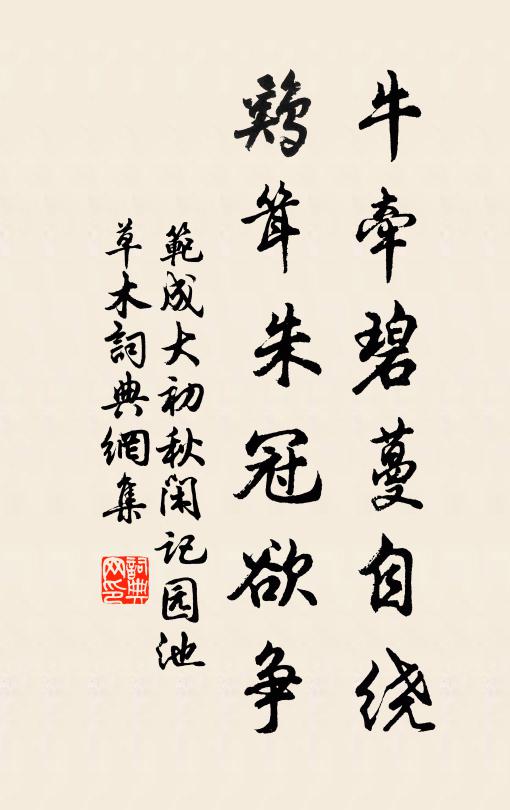 牛牽碧蔓自绕
鷄耸朱冠欲争
範成大初秋闲记园池
草木詞典網集
詞典
网印